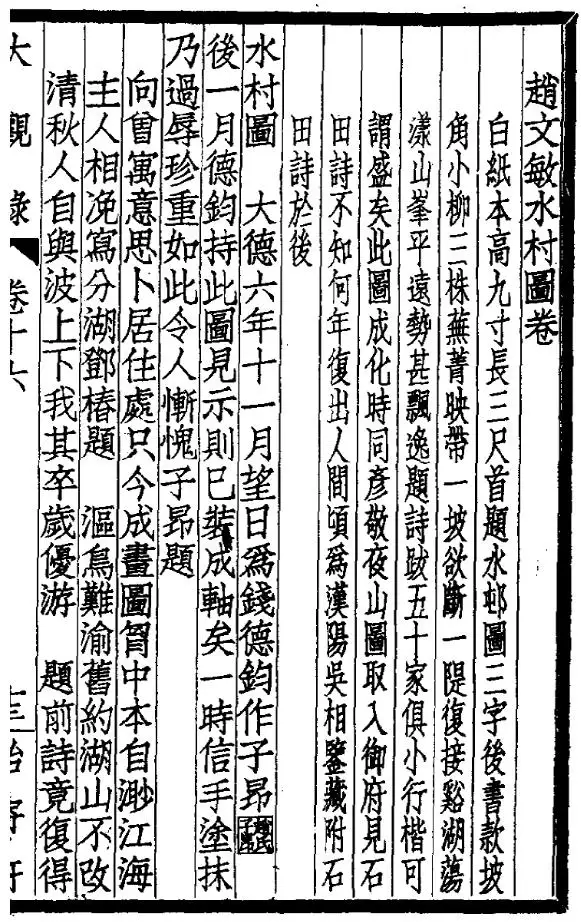 趙文敏水村圖卷
白紙本高九寸長三尺首題水邨圖三字後書款坡
角小柳二株蕪菁映帶一坡欲斷一隄復接谿湖蕩
漾山峯平遠勢甚飄逸題詩跋五十家俱小行楷可
謂盛矣此圖成化時同彥敬夜山圖取入御府見石
田詩不知何年復出人間頃爲漢陽吳相鑒藏附石
田詩於後
水村圖 大德六年十一月望日爲錢德鈞作子昂
後一月德鈞持此圖見示則已裝成軸矣一時信手塗抹
乃過辱珍重如此令人慚愧子昂題
向曾寓意思卜居住處只今成畫圖胷中本自渺江海
主人相浼寫分湖鄧椿題 漚鳥難渝舊約湖山不改
清秋人自與波上下我其卒歲優游 題前詩竟復得
大觀錄 卷十六